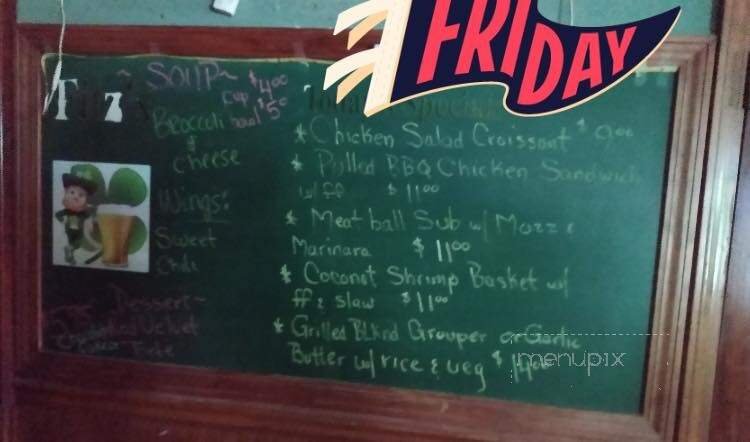 FRIDAY
~ SOUP ~ $4.00
cup
bowl $5.00
Broccoli
&
cheese
Wings:
Sweet
Chili
Dessert ~
Red Velvet
* Chicken Salad Croissant $9.00
* Pulled BBQ Chicken Sandwich
w/ ff $11.00
* Meat ball Sub w/ Mozz &
Marinara $11.00
* Coconut Shrimp Basket w/
ff & slaw $11.00
* Grilled Blknd Grouper or Garlic
Butter w/ rice & veg $14.00
menupix